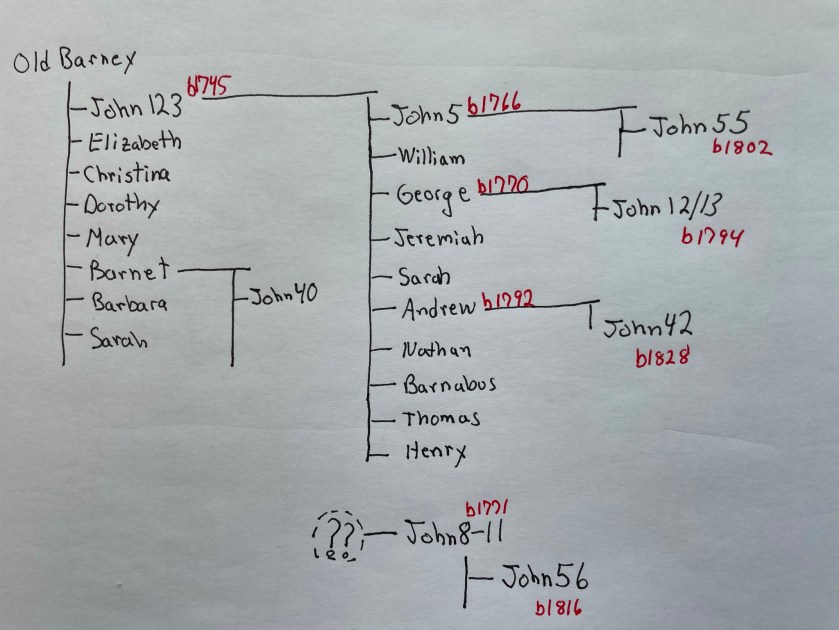 Old Barney
John 123 b1745
Elizabeth
Christina
Dorothy
Mary
Barnet
Barbara
Sarah
John 40
John 5 b1766
William
George b1770
Jeremiah
Sarah
Andrew b1792
Nathan
Barnabus
Thomas
Henry
John 55
b1802
John 12/13
b1794
John 42
b1828
??
b1771
John 8-11
John 56
b1816